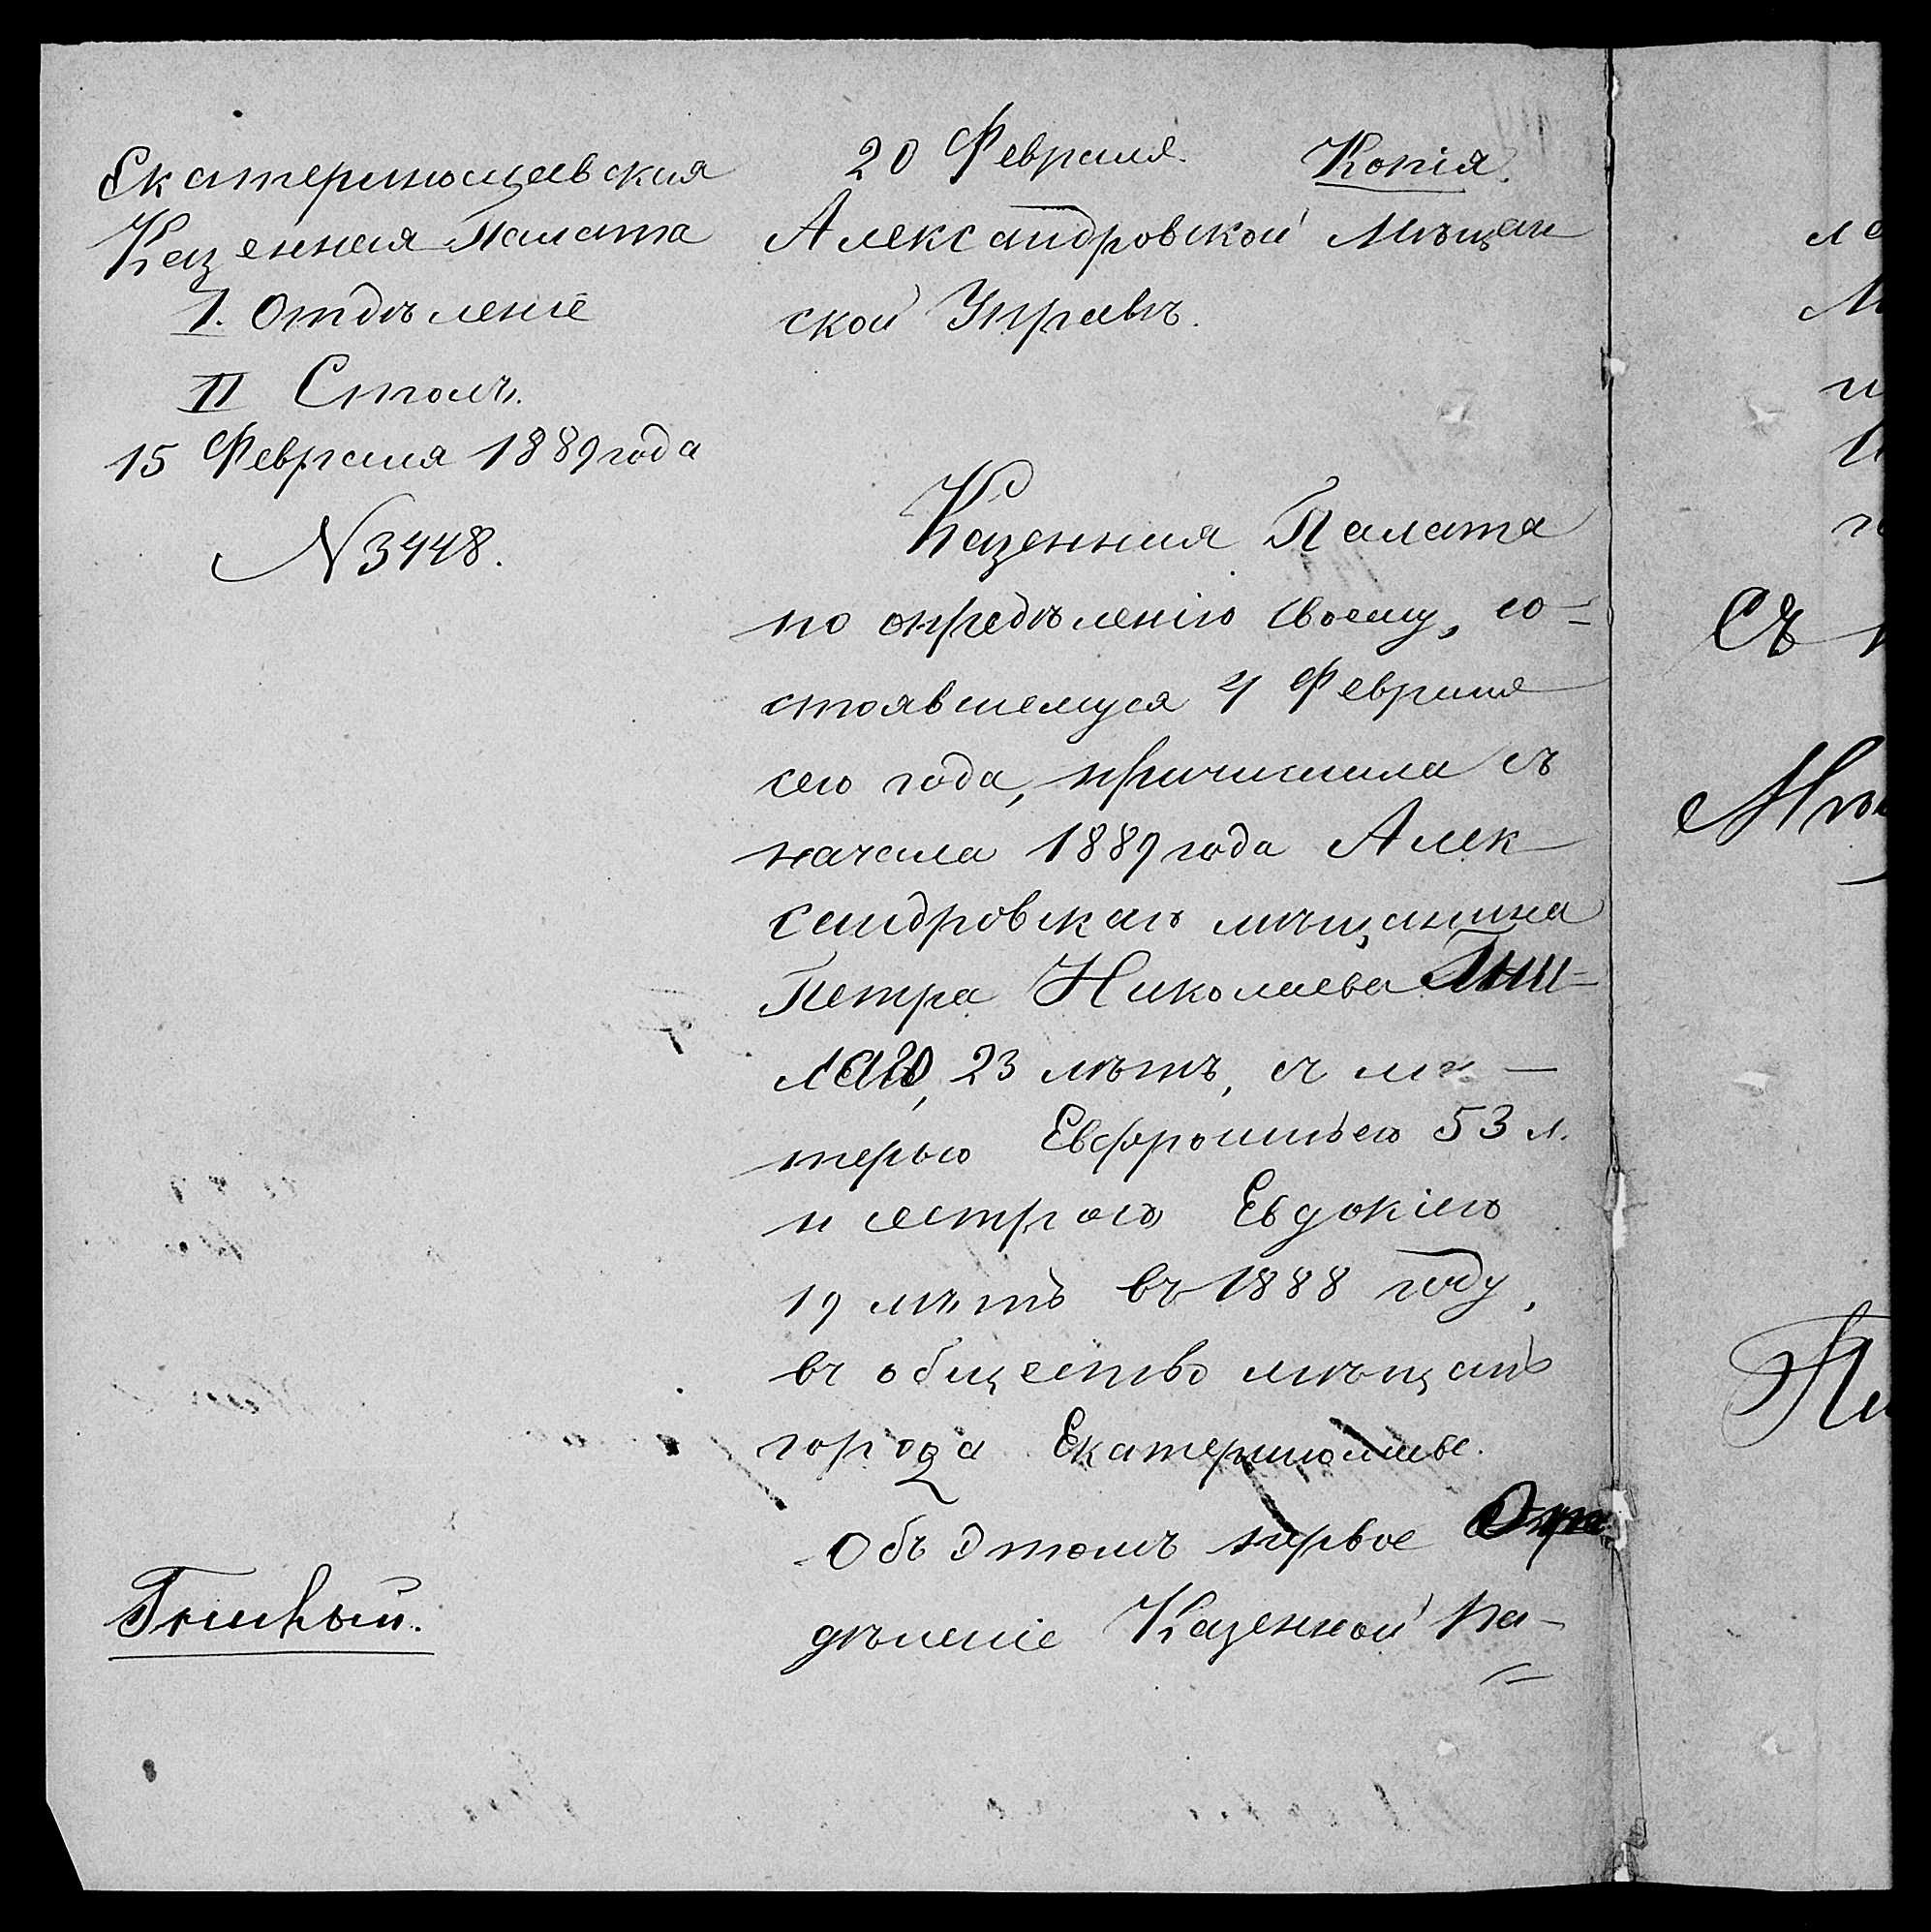 Екатеринославская
Казенная Палата
I. Отдѣленіе
II Столъ.
15 Февраля 1889 года
N 3448.
20 Февраля. Копія.
Александровской Мѣщан
ской Управѣ.
Казенная Палата
по опредѣленію своему, со-
стоявшемуся 4 Февраля
сего года, причислила съ
начала 1889 года Алек-
сандровскаго мѣщанина
Петра Николаева Гни-
лаго, 23 лѣтъ, съ ма-
терью Евфросиньею 53 л.
и сестрою Евдокіею
19 лѣтъ въ 1888 году,
въ общество мѣщанъ
города Екатеринослава.
Объ этомъ первое От
дѣленіе Казенной Па-
Гнилый.
Съ